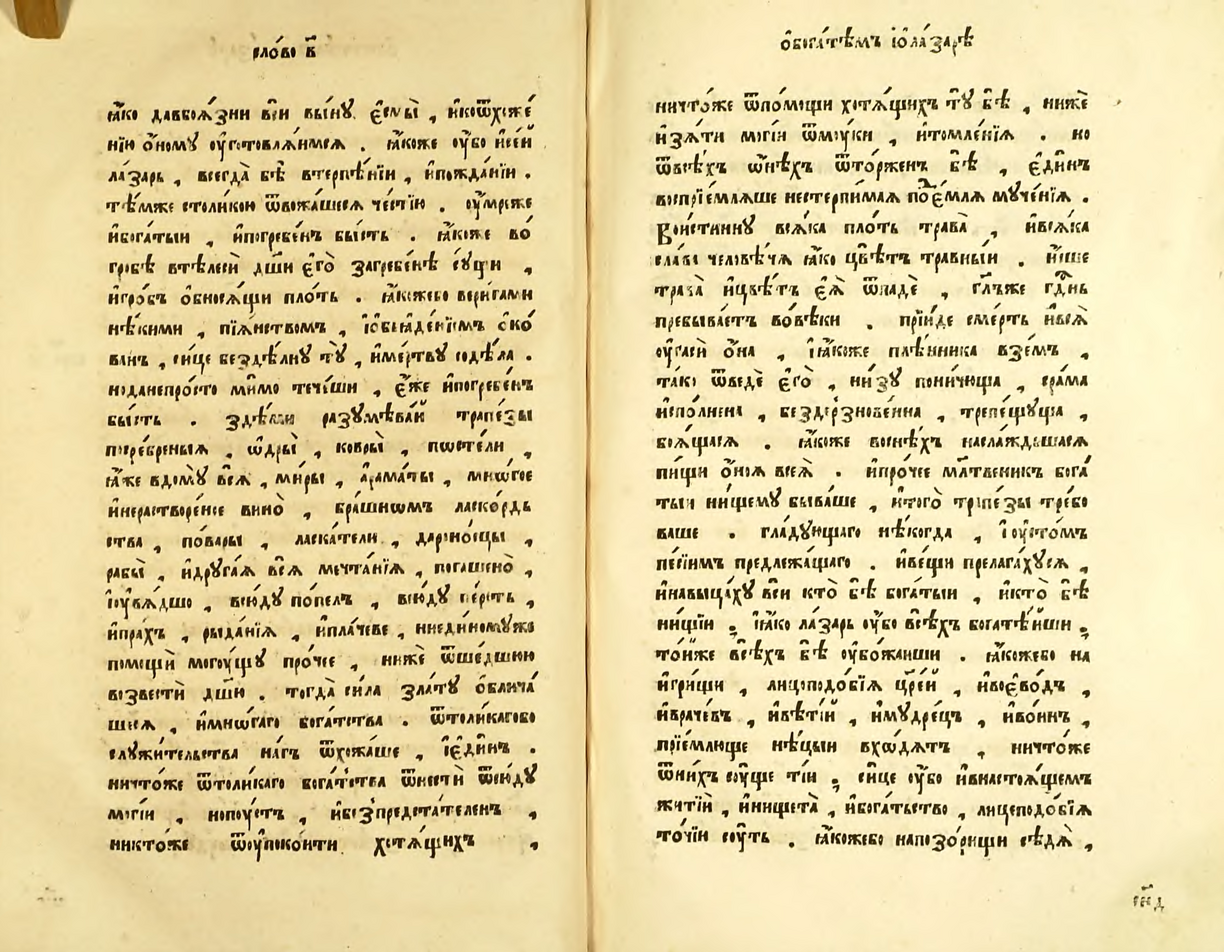 сло́во в҃
ꙗ҆́ко давбоѧ́зни вси вы́нꙋ є҆смы̀ , и҆коѿхоже́
нїю о҆́номꙋ оу҆готовлѧ́имсѧ . ꙗ҆́коже оу҆́бо и҆се́й
ла́зарь , всегда̀ бѣ̀ втерпѣ́нїи , и҆пожда́нїи .
тѣ́мже столикою ѿвожа́шесѧ че́стїю . оу҆́мрꙗже
и҆бога́тыи , и҆погребе́нъ бы́сть . ꙗ҆́коже во
гро́бѣ втѣ́леси дш҃и є҆гѡ̀ загребе́нѣ сꙋ́щи ,
и҆гро́бъ о҆бносѧ́щи пло́ть . ꙗ҆́кожебо верига́ми
нѣ́кими , пїѧ́нствомъ , і҆о҆б̾ꙗде́нїемъ ѡ҆ко́
ванъ , си́це безде́лнꙋ тꙋ̀ , и҆ме́ртвꙋ содѣ́ла .
ноданепро́сто ми́мо тече́ши , є҆́же и҆погребе́нъ
бы́сть . здѣ́ми разꙋмѣва́й трапе́зы
посре́бреныѧ , ѡ҆дры̀ , ковры̀ , пѡсте́ли ,
ꙗ҆́же вдомꙋ̀ всѧ̀ , ми́ры , а҆рама́ты , мно́гое
и҆нерастворе́ное вино̀ , бра́шнѡмъ ласко́рдь
ства , повары̀ , ласка́тели , дароно́сцы ,
рабы̀ , и҆дрꙋга́ѧ всѧ̀ мечта́нїѧ , погашено̀ ,
і҆оу҆вѧ́дшо , всю́дꙋ по́пелъ , всю́дꙋ пе́рсть ,
и҆пра́хъ , рыда́нїѧ , и҆пла́чеве , ниединомꙋ́же
помощѝ могоу́щꙋ про́чее , нижѐ ѿше́дшюю
возвестѝ дш҃и . тогда̀ си́ла зла́тꙋ о҆блича́
шесѧ , и҆мно́гаго бога́тства . ѿтоли́кагобо
слꙋжи́тельства на́гъ ѿхожа́ше , і҆є҆ди́нъ .
ничто́же ѿтоли́каго бога́тства ѿнестѝ ѿсю́дꙋ
моги́и , нопоу́стъ , и҆безпредста́теленъ ,
никто́же ѿоу҆поко́ити хотѧ́щихъ ,
о҆бога́тѣмъ і҆о҆ла́зарѣ
ничто́же ѿпомощи хотѧ́щихъ тꙋ̀ бѣ̀ , нижѐ
и҆зѧ́ти моги́и ѿмꙋ́ки , и҆томле́нїѧ . но
ѿвсѣ́хъ ѡ҆нѣ́хъ ѿто́рженъ бѣ̀ , є҆ди́нъ
воспрїе́млѧше нестерпи́маѧ под̾е́млѧ мꙋче́нїѧ .
Вои́стиннꙋ всѧ́ка пло́ть трава̀ , и҆всѧ́ка
сла́ва человѣ́чѧ ꙗ҆́ко цвѣ́тъ тра́вныи . и҆́сше
трава̀ и҆цвѣ́тъ є҆ѧ̀ ѿпадѐ , гл҃ъже гд҃нь
пребыва́етъ вовѣ́ки . прїи́де сме́рть и҆всѧ̀
оу҆гасѝ о҆на̀ , і҆ꙗ҆́коже плѣ́нника взе́мъ ,
та́ко ѿведѐ є҆го̀ , ни́зꙋ пони́чюща , сра́ма
и҆спо́лнена , бездерзнове́нна , трепе́щꙋща ,
боѧ́щасѧ . ꙗ҆́коже восне́хъ наслажда́шасѧ
пи́щи о҆́ноѧ всеѧ̀ . и҆про́чее мл҃твеникъ бога́
тыи ни́щемꙋ быва́ше , и҆того̀ трапе́зы тре́бо
ваше . гла́дꙋющаго нѣ́когда , і҆оу҆сто́мъ
пе́сїимъ предлежа́щаго . и҆ве́щи прелага́хꙋсѧ ,
и҆навыца́хꙋ вси кто̀ бѣ̀ бога́тыи , и҆кто̀ бѣ̀
ни́щїи ; і҆ꙗ҆́ко ла́зарь оу҆́бо всѣ́хъ богатѣ́иши ;
то́йже всѣ́хъ бѣ̀ оу҆бо́жаиши . ꙗ҆́кожебо на
и҆гри́щи , лицеподо́бїѧ цр҃е́й , и҆воєво́дъ ,
и҆враче́въ , и҆вѣті́й , и҆мꙋдре́цъ , и҆во́инъ ,
прїе́млюще нѣ́цыи вхо́дѧтъ , ничто́же
ѿни́хъ соу́ще ті́и ; си́це оу҆́бо и҆внастоѧ́щемъ
житїѝ , и҆нищета̀ , и҆бога́тьство , лицеподо́бїѧ
то́чїи соу́ть . ꙗ҆́кожебо напозо́рищи сѣдѧ̀ ,